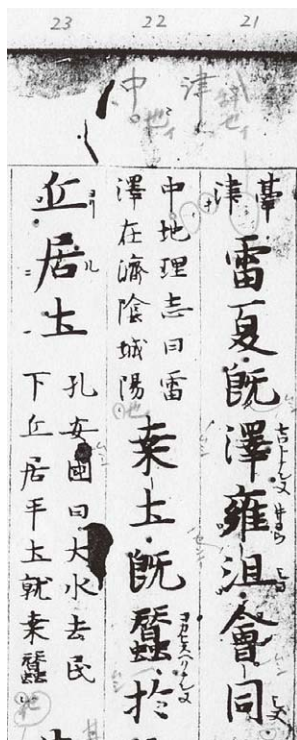 21
22
23
津
中
津
雷夏既澤雍沮會同
中地理志曰雷
澤在濟陰城陽
桒土既蠶於
丘居土
孔安國曰大水去民
下丘居平土就桒蠶